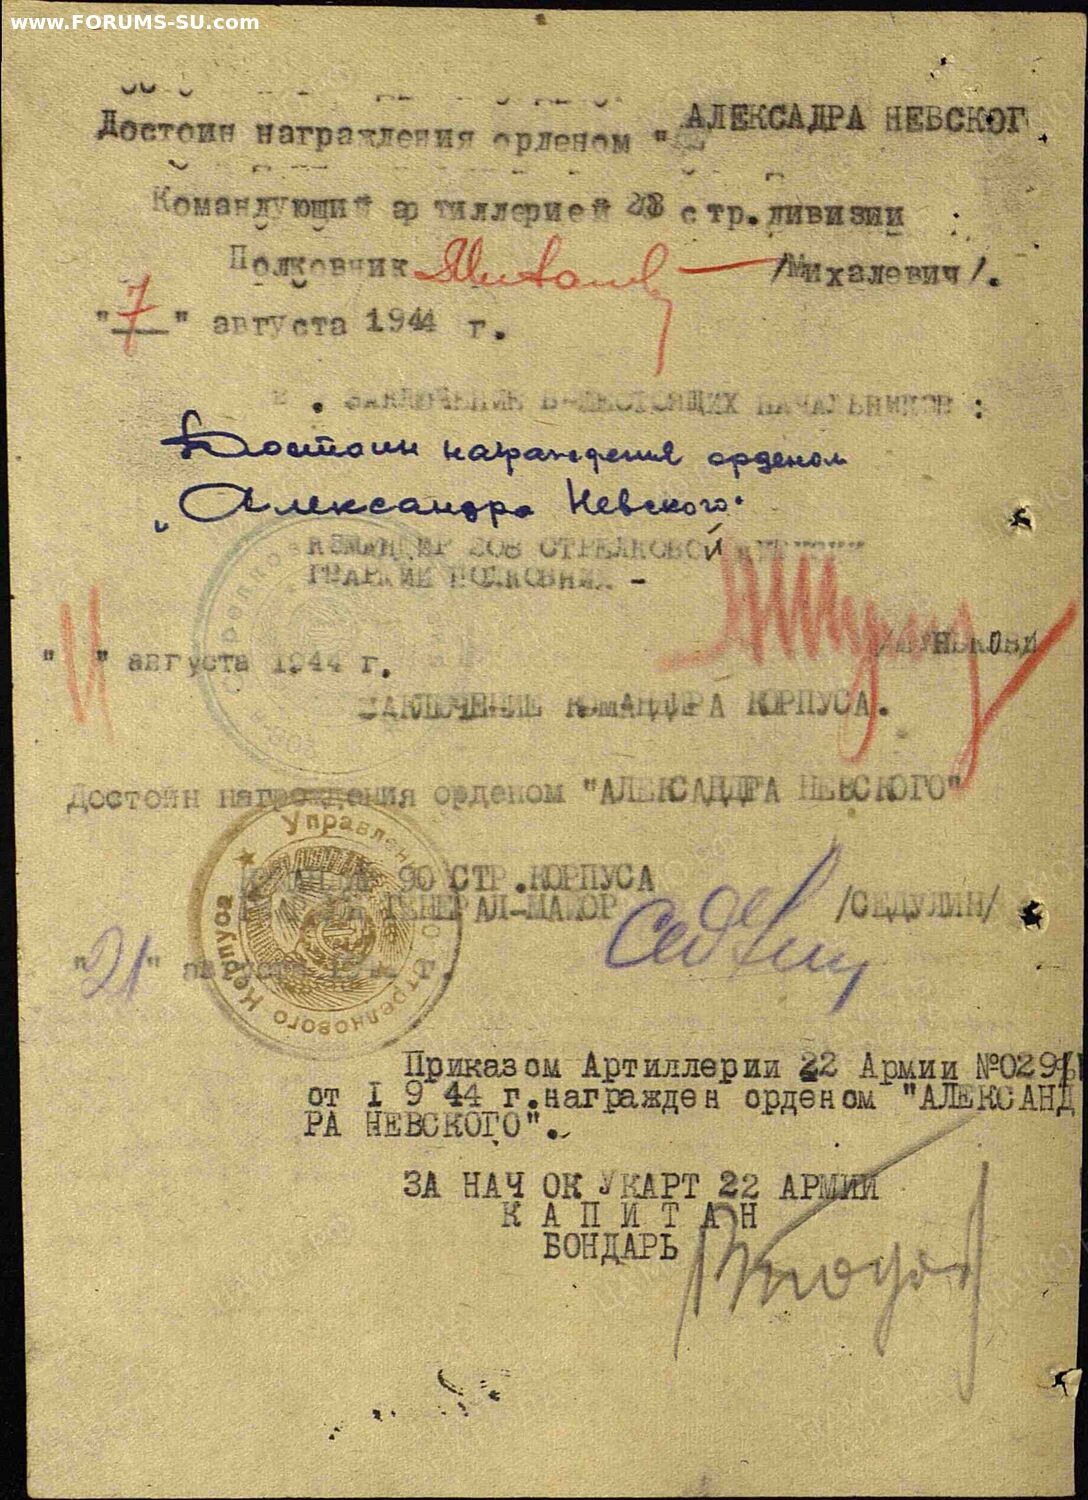 www.FORUMS-SU.com
Достоин награждения орденом "
АЛЕКСАДРА НЕВСКОГ
Командующий артиллерией стр.дивизии
Полковник /Михалевич/.
"7" августа 1944 г.
ЗАКЛЮЧЕНИЕ НАЧАЛЬНИКОВ :
Достоин награждения орденом
"Александра Невского"
КОМАНДИР 208 СТРЕЛКОВОЙ
ГВАРДИИ ПОЛКОВНИК -
" " августа 1944 г.
ЗАКЛЮЧЕНИЕ КОМАНДИРА КОРПУСА.
Достоин награждения орденом "АЛЕКСАНДРА НЕВСКОГО"
КОМАНДИР 90 СТР.КОРПУСА
ГЕНЕРАЛ-МАЙОР /СЕДУЛИН/
"21" августа г.
Управлен Стрелкового Корпуса
Приказом Артиллерии 22 Армии
от I 9 44 г.награжден орденом "АЛЕКСАНД
РА НЕВСКОГО".
ЗА НАЧ ОК УКАРТ 22 АРМИИ
К А П И Т А Н
БОНДАРЬ